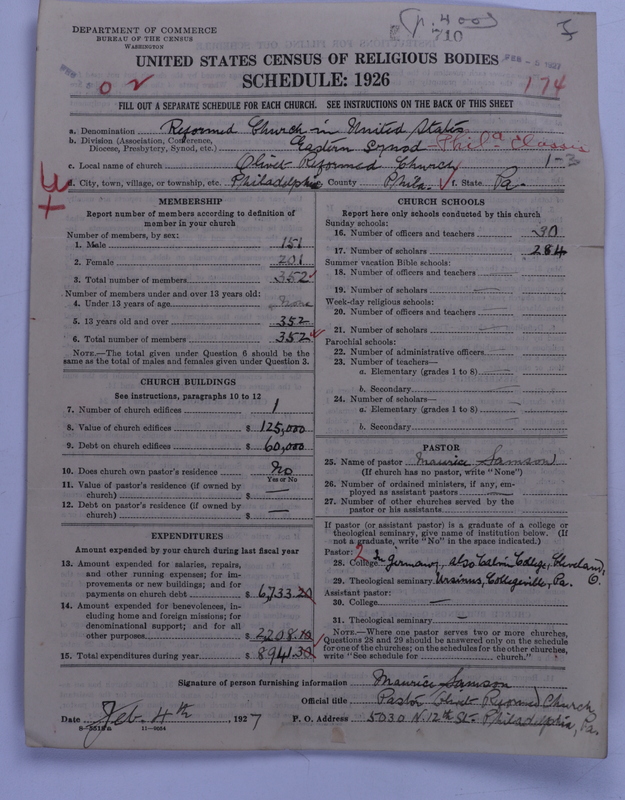 DEPARTMENT OF COMMERCE
BUREAU OF THE CENSUS
WASHINGTON
(p. 400)
710
UNITED STATES CENSUS OF RELIGIOUS BODIES
SCHEDULE: 1926
174
FILL OUT A SEPARATE SCHEDULE FOR EACH CHURCH. SEE INSTRUCTIONS ON THE BACK OF THIS SHEET
a. Denomination Reformed Church in United States
b. Division (Association, Conference, Diocese, Presbytery, Synod, etc.) Eastern Synod - Phila Classis
c. Local name of church Olivet Reformed Church 1-3
d. City, town, village, or township, etc. Philadelphia County Phila. f. State Pa.
MEMBERSHIP
Report number of members according to definition of
member in your church
Number of members, by sex:
1. Male 151
2. Female 201
3. Total number of members 352
Number of members under and over 13 years old:
4. Under 13 years of age None
5. 13 years old and over 352
6. Total number of members 352
NOTE.—The total given under Question 6 should be the
same as the total of males and females given under Question 3.
CHURCH BUILDINGS
See instructions, paragraphs 10 to 12
7. Number of church edifices 1
8. Value of church edifices $ 125,000
9. Debt on church edifices $ 60,000
10. Does church own pastor's residence No
Yes or No
11. Value of pastor's residence (if owned by
church) $ —
12. Debt on pastor's residence (if owned by
church) $ —
EXPENDITURES
Amount expended by your church during last fiscal year
13. Amount expended for salaries, repairs,
and other running expenses; for im-
provements or new buildings; and for
payments on church debt $ 6,733.20
14. Amount expended for benevolences, in-
cluding home and foreign missions; for
denominational support; and for all
other purposes $ 2208.10
15. Total expenditures during year $ 8941.30
CHURCH SCHOOLS
Report here only schools conducted by this church
Sunday schools:
16. Number of officers and teachers 30
17. Number of scholars 284
Summer vacation Bible schools:
18. Number of officers and teachers
19. Number of scholars —
Week-day religious schools:
20. Number of officers and teachers
21. Number of scholars —
Parochial schools:
22. Number of administrative officers
23. Number of teachers—
a. Elementary (grades 1 to 8)
b. Secondary
24. Number of scholars—
a. Elementary (grades 1 to 8)
b. Secondary
PASTOR
25. Name of pastor Maurice Samson
(If church has no pastor, write "None")
26. Number of ordained ministers, if any, em-
ployed as assistant pastors —
27. Number of other churches served by the
pastor or his assistants
If pastor (or assistant pastor) is a graduate of a college or
theological seminary, give name of institution below. (If
not a graduate, write "No" in the space indicated.)
Pastor: 2
28. College In Germany, also Calvin College, Cleveland, O.
29. Theological seminary Ursinus, Collegeville, Pa.
Assistant pastor:
30. College —
31. Theological seminary —
NOTE.—Where one pastor serves two or more churches,
Questions 28 and 29 should be answered only on the schedule
for one of the churches; on the schedules for the other churches,
write "See schedule for church."
Signature of person furnishing information Maurice Samson
Official title Pastor Olivet Reformed Church
Date Feb. 4th, 1927 P. O. Address 5030 N. 12th St- Philadelphia, Pa.
11—9054